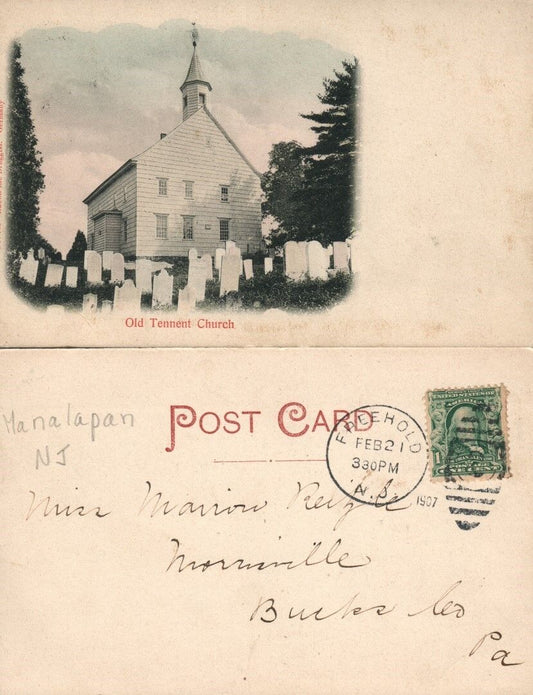 Germany
Old Tennent Church
Manalapan
NJ
POST CARD
FREEHOLD
FEB 21
330PM
N.J.
1907
UNITED STATES OF
AMERICA
Miss Marion
Morrisville
Bucks Co
Pa